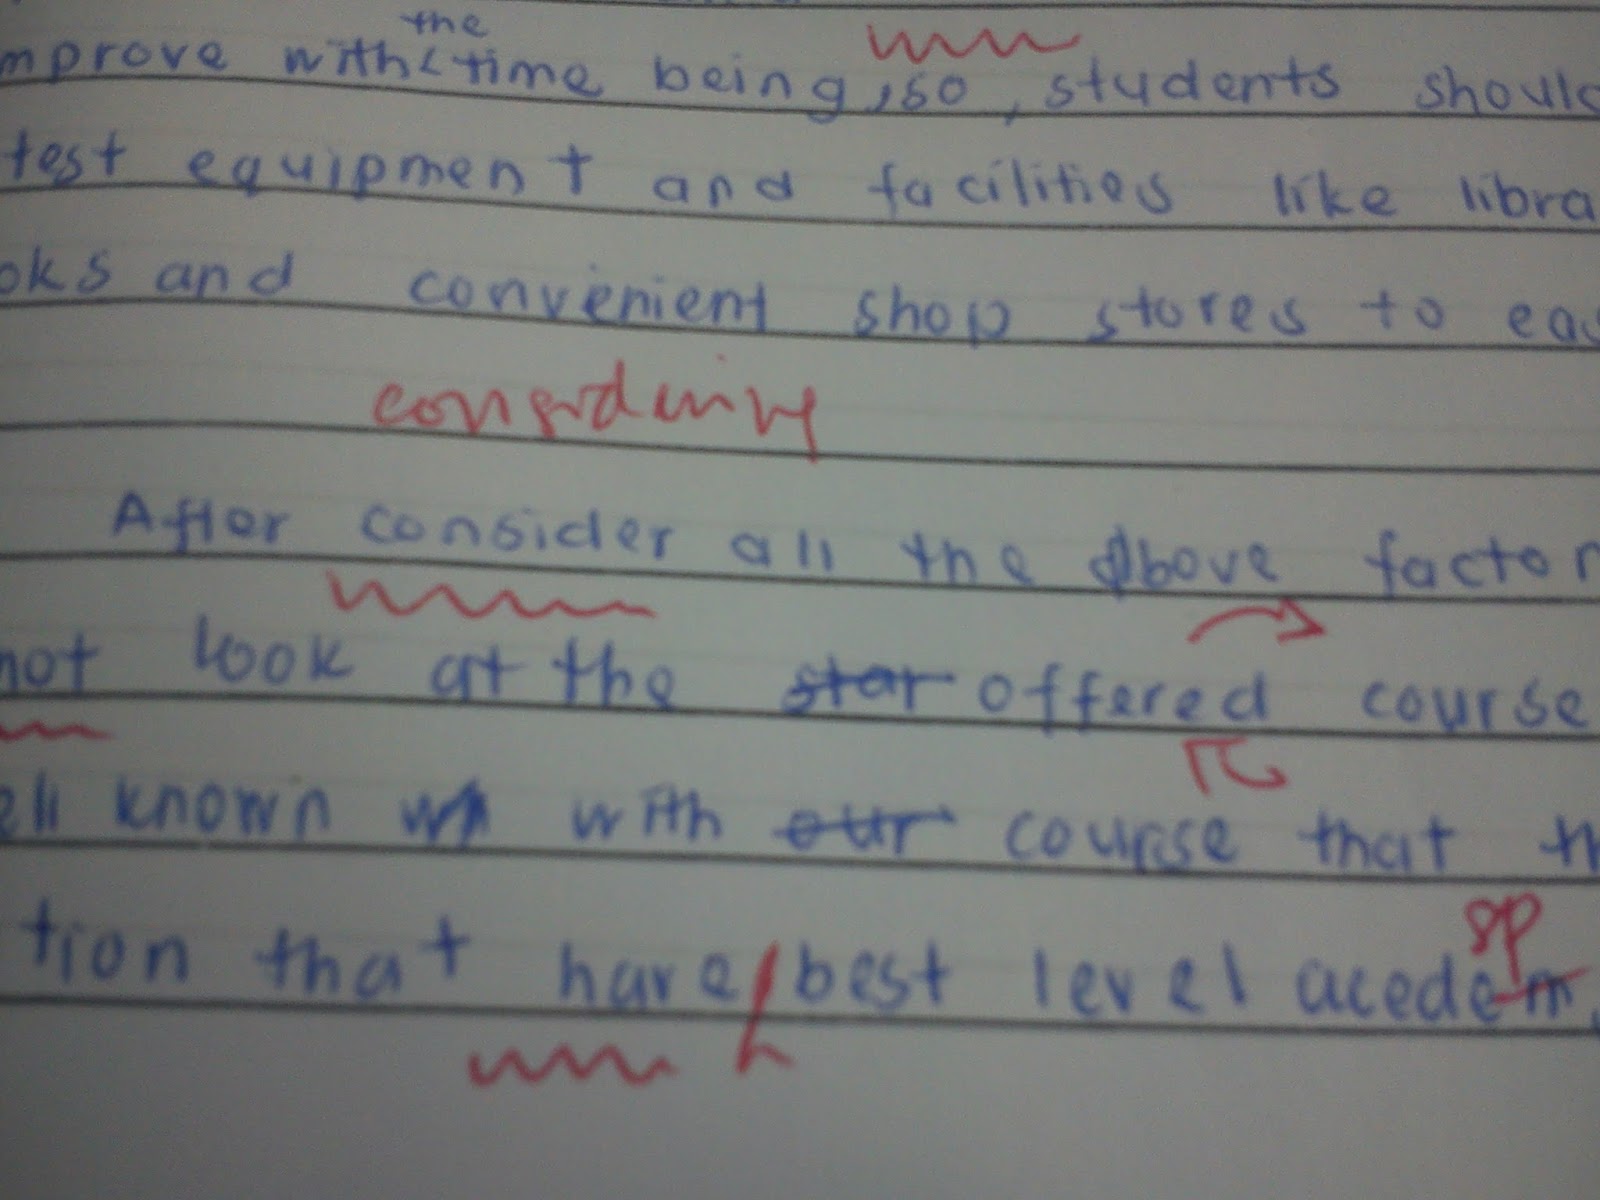 the
mprove with time being, so, students should
test equipment and facilities like libra
oks and convenient shop stores to eas
considering
After consider all the above factor
not look at the star offered course
ell known with our course that th
sp
tion that have best level acedem